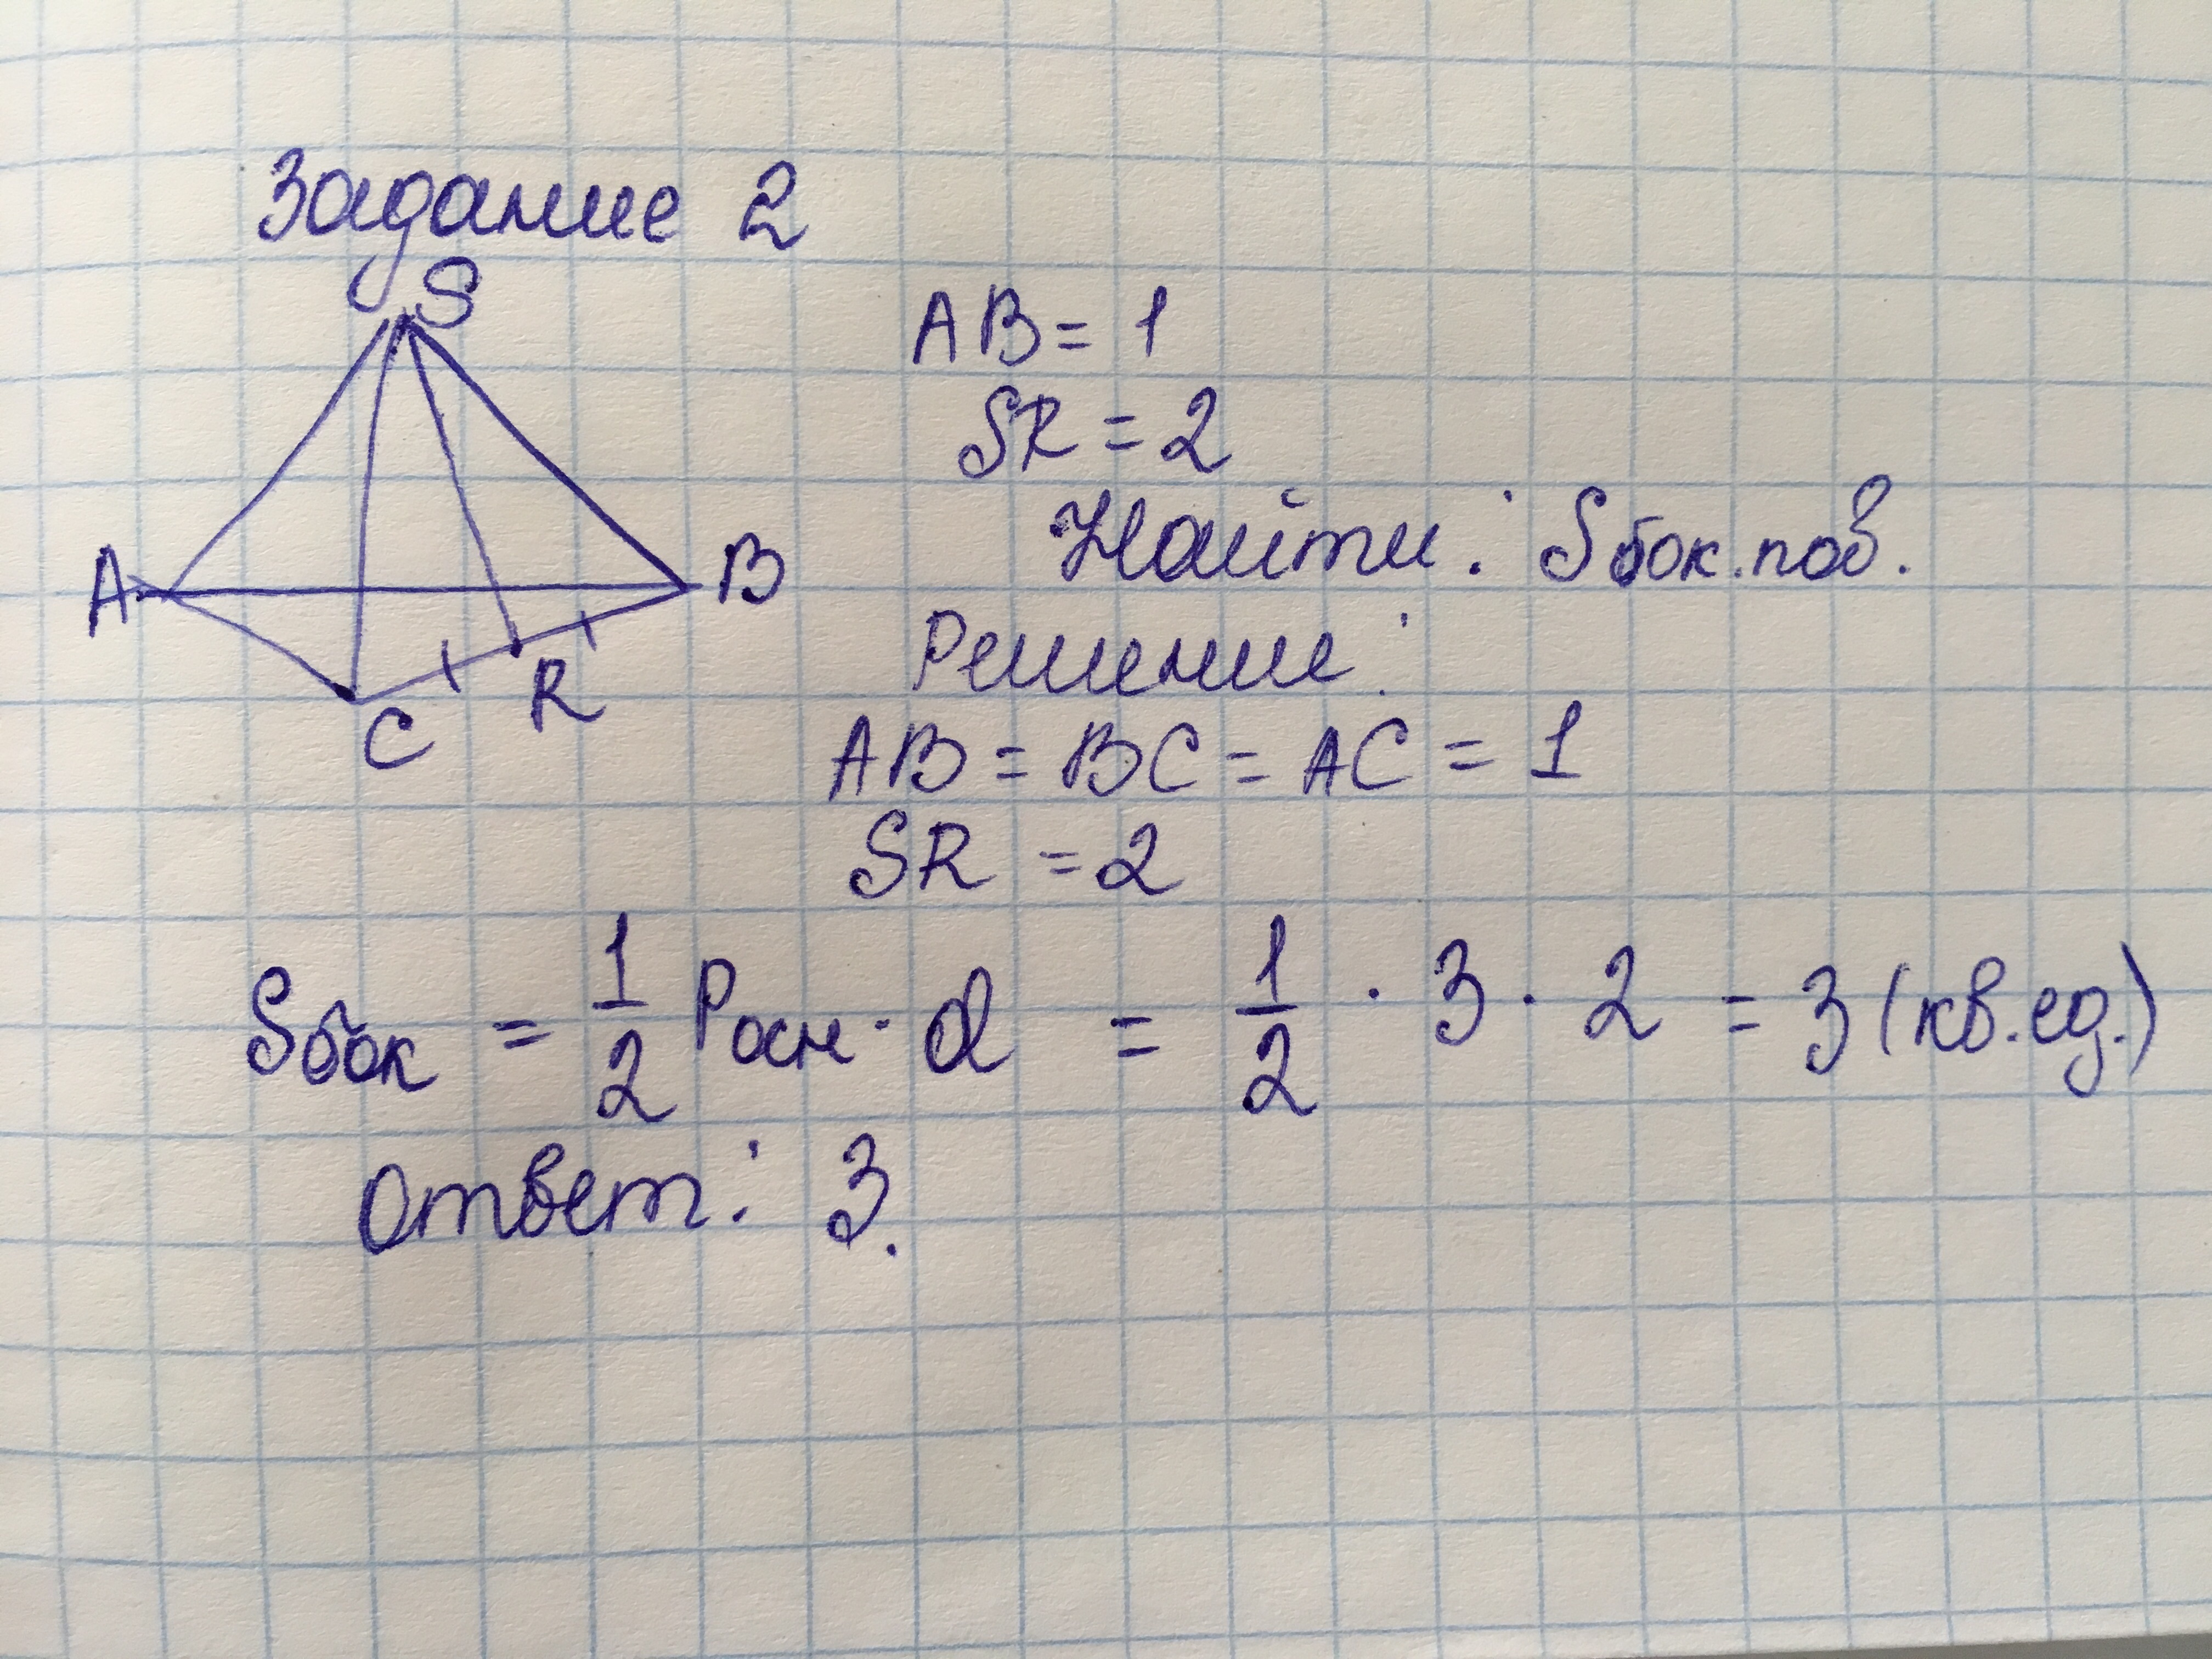 Задание 2
S
A
B
C
R
AB = 1
SR = 2
Найти: Sбок.пов.
Решение:
AB = BC = AC = 1
SR = 2
Sбок = 1/2 Pосн · d = 1/2 · 3 · 2 = 3 (кв.ед.)
Ответ: 3.